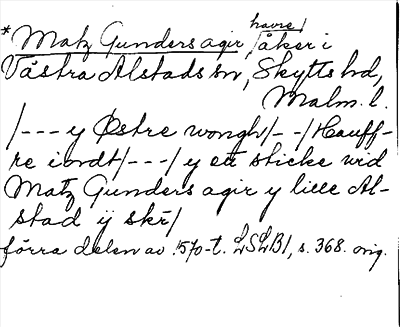 *Matz Gunders agir, havre/ åker i
Västra Alstads sn, Skytts hd,
Malm. l.
/--- y Østre wongh/--/Hauff-
re iordt/---/ y ett sticke wid
Matz Gunders agir y lille Al-
stad ij skr/
förra delen av 1570-t. LSLB1, s. 368. orig.